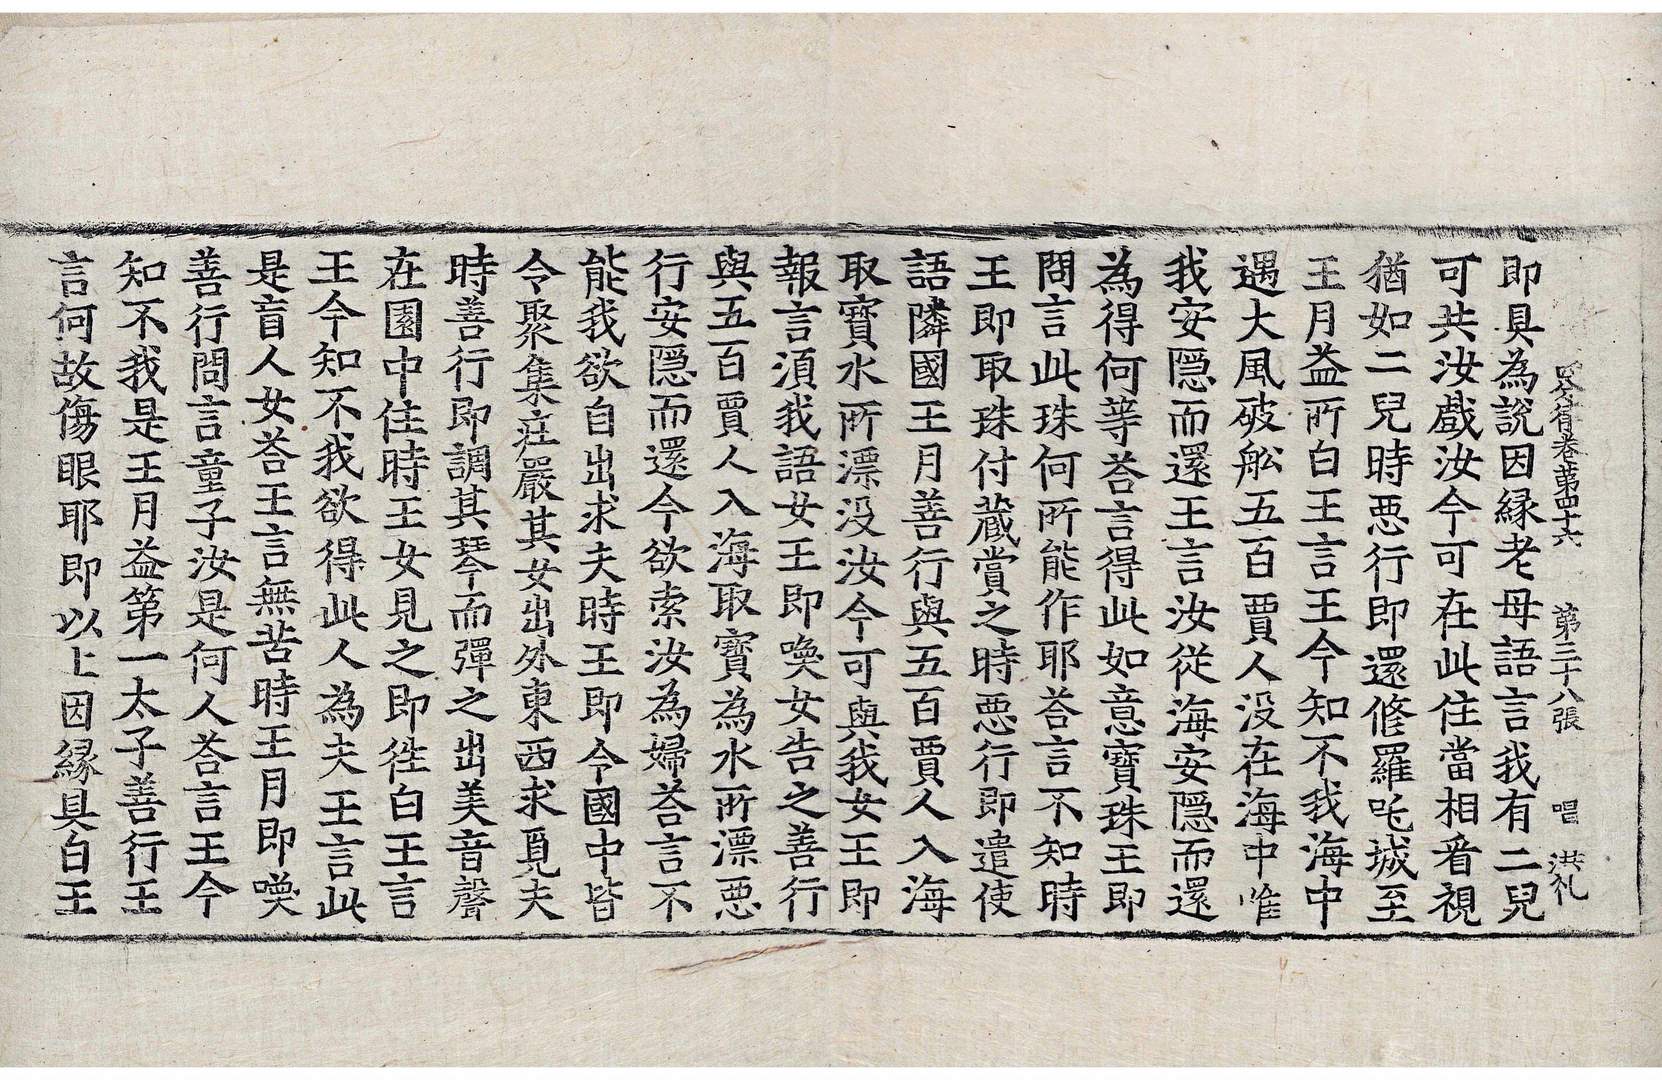 四分律卷第四十六 第三十八張 唱 洪礼
即具為說因緣老母語言我有二兒
可共汝戲汝今可在此住當相看視
猶如二兒時惡行即還修羅吒城至
王月益所白王言王今知不我海中
遇大風破舩五百賈人没在海中唯
我安隱而還王言汝從海安隱而還
為得何等荅言得此如意寶珠王即
問言此珠何所能作耶荅言不知時
王即取珠付藏賞之時惡行即遣使
語隣國王月善行與五百賈人入海
取寶水所漂没汝今可與我女王即
報言湏我語女王即喚女告之善行
與五百賈人入海取寶為水所漂惡
行安隱而還今欲索汝為婦荅言不
能我欲自出求夫時王即令國中皆
令聚集莊嚴其女出外東西求覓夫
時善行即調其琴而彈之出美音聲
在園中住時王女見之即徃白王言
王今知不我欲得此人為夫王言此
是盲人女荅王言無苦時王月即喚
善行問言童子汝是何人荅言王今
知不我是王月益第一太子善行王
言何故傷眼耶即以上因緣具白王